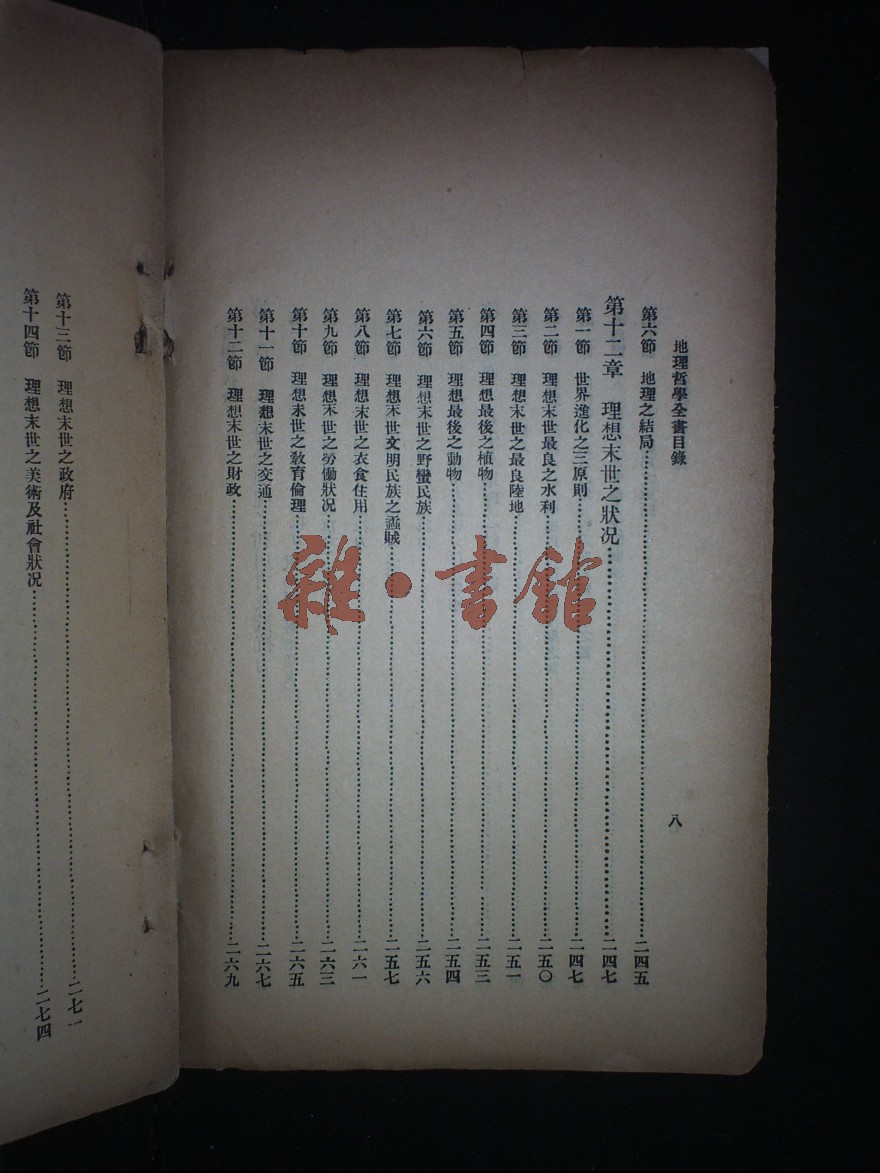 地理哲學全書目錄
八
第六節 地理之結局……二四五
第十二章 理想末世之狀况……二四七
第一節 世界進化之三原則……二四七
第二節 理想末世最良之水利……二五〇
第三節 理想末世之最良陸地……二五一
第四節 理想最後之植物……二五三
第五節 理想最後之動物……二五四
第六節 理想末世之野蠻民族……二五六
第七節 理想末世文明民族之蟊賊……二五七
第八節 理想末世之衣食住用……二六一
第九節 理想末世之勞働狀况……二六三
第十節 理想末世之敎育倫理……二六五
第十一節 理想末世之交通……二六七
第十二節 理想末世之財政……二六九
第十三節 理想末世之政府……二七一
第十四節 理想末世之美術及社會狀况……二七四
雜·書館